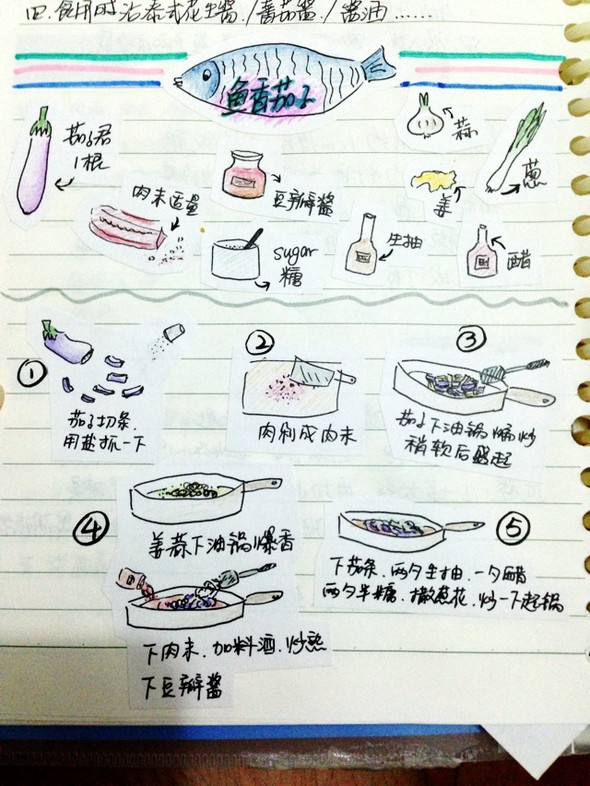 四.食用时沾泰式花生酱./番茄酱./酱油……
鱼香茄子
茄子君
1根
肉末适量
豆瓣酱
蒜
姜
葱
sugar
糖
生抽
醋
①
茄子切条.
用盐抓一下
②
肉剁成肉末
③
茄子下油锅煸炒
稍软后盛起
④
姜蒜下油锅爆香
下肉末.加料酒.炒熟
下豆瓣酱
⑤
下茄条.两勺生抽.一勺醋
两勺半糖.撒葱花.炒一下起锅